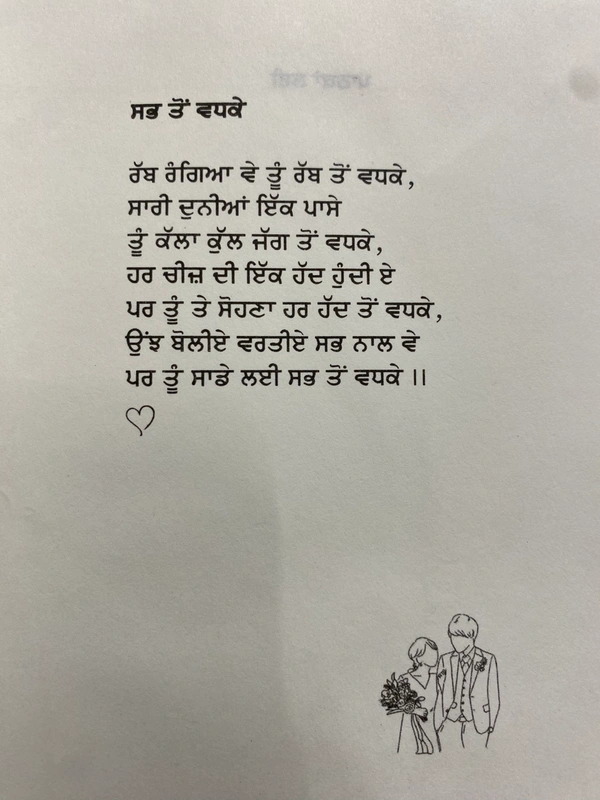 ਸਭ ਤੋਂ ਵਧਕੇ
ਰੱਬ ਰੰਗਿਆ ਵੇ ਤੂੰ ਰੱਬ ਤੋਂ ਵਧਕੇ,
ਸਾਰੀ ਦੁਨੀਆਂ ਇੱਕ ਪਾਸੇ
ਤੂੰ ਕੱਲਾ ਕੁੱਲ ਜੱਗ ਤੋਂ ਵਧਕੇ,
ਹਰ ਚੀਜ਼ ਦੀ ਇੱਕ ਹੱਦ ਹੁੰਦੀ ਏ
ਪਰ ਤੂੰ ਤੇ ਸੋਹਣਾ ਹਰ ਹੱਦ ਤੋਂ ਵਧਕੇ,
ਉਂਝ ਬੋਲੀਏ ਵਰਤੀਏ ਸਭ ਨਾਲ ਵੇ
ਪਰ ਤੂੰ ਸਾਡੇ ਲਈ ਸਭ ਤੋਂ ਵਧਕੇ ।।